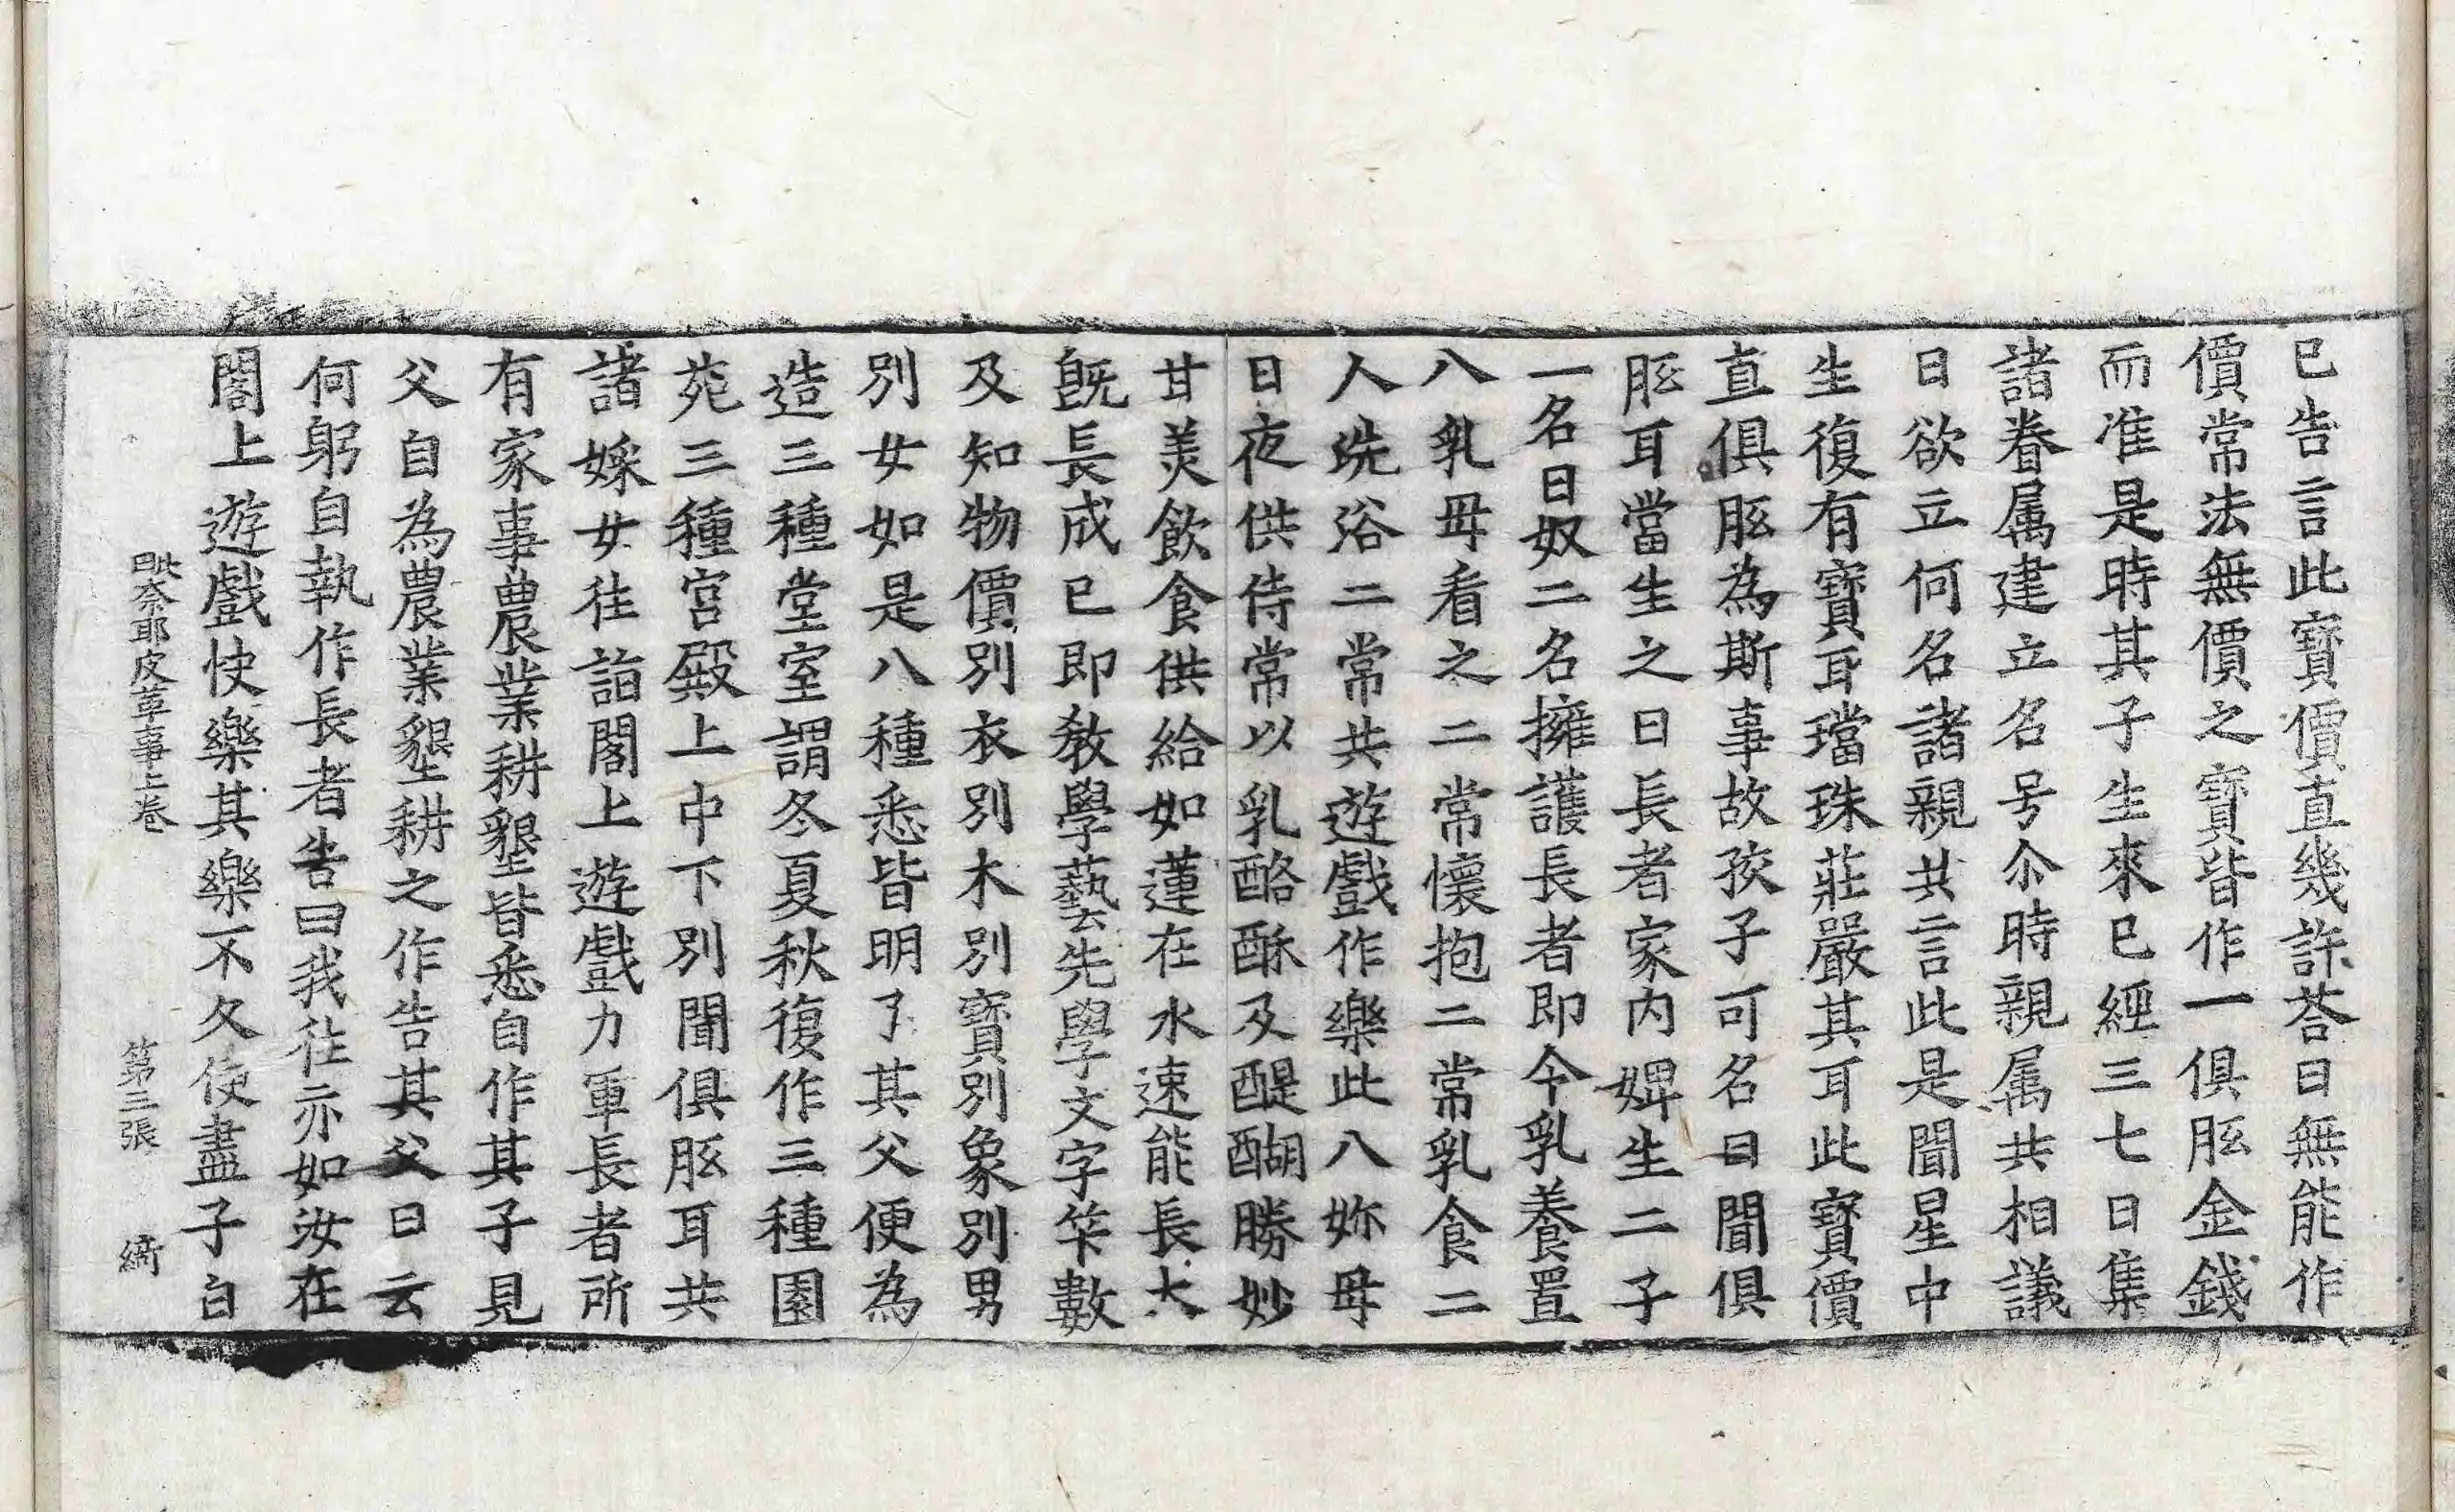 已告言此寳價直幾許荅曰無能作
價常法無價之寳皆作一俱胝金錢
而准是時其子生來已經三七日集
諸眷属建立名号尒時親属共相議
日欲立何名諸親共言此是聞星中
生復有寳耳璫珠莊嚴其耳此寳價
直俱胝為斯事故孩子可名曰聞俱
胝耳當生之日長者家内婢生二子
一名曰奴二名擁護長者即令乳養置
八乳母看之二常懷抱二常乳食二
人洗浴二常共遊戲作樂此八妳母
日夜供侍常以乳酪酥及醍醐勝妙
甘美飲食供給如蓮在水速能長大
旣長成已即敎學藝先學文字笇數
及知物價別衣別木別寳別象別男
別女如是八種悉皆明了其父便為
造三種堂室謂冬夏秋復作三種園
苑三種宮殿上中下別聞俱胝耳共
諸婇女徃詣閣上遊戲力軍長者所
有家事農業耕墾皆悉自作其子見
父自為農業墾耕之作告其父曰云
何躬自執作長者告曰我徃亦如汝在
閣上遊戲快樂其樂不久使盡子白
毗奈耶皮革事上卷 第三張 綺